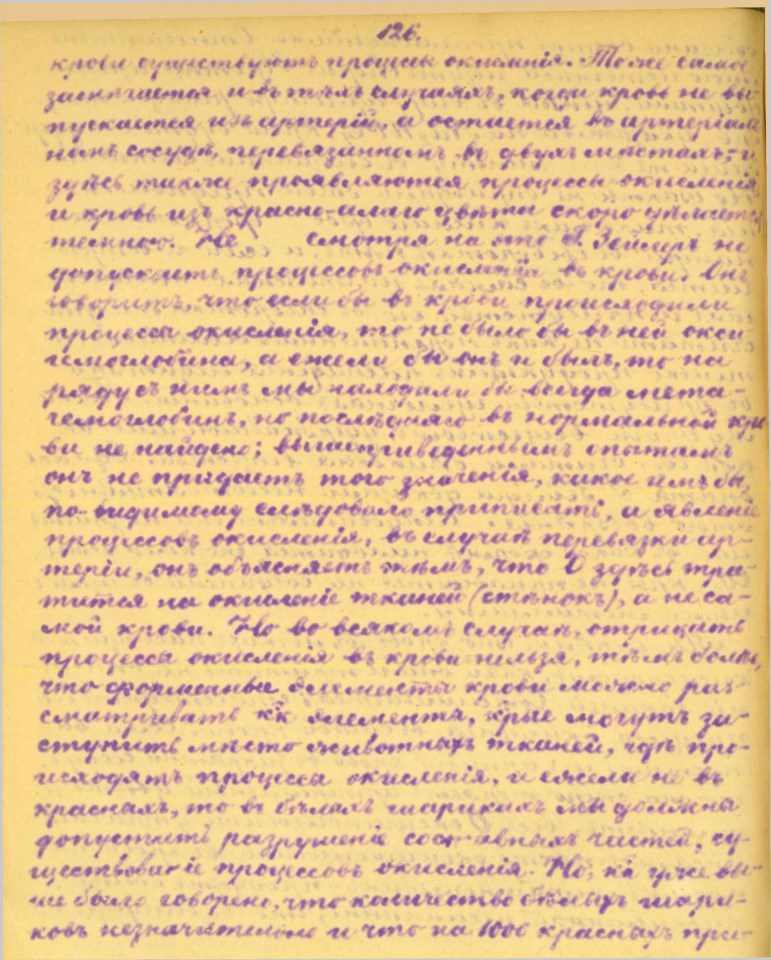 126.
крови существуютъ процессы окисленія. То же самое
замѣчается и въ тѣхъ случаяхъ, когда кровь не вы-
пускается изъ артерій, а остается въ артеріаль
номъ сосудѣ, перевязанномъ въ двухъ мѣстахъ; и
здѣсь также проявляются процессы окисленія
и кровь изъ красно-алаго цвѣта скоро дѣлается
темною. Не смотря на это Г. Зейлеръ не
допускаетъ процессовъ окисленія въ крови. Онъ
говоритъ, что если бы въ крови происходили
процессы окисленія, то не было бы въ ней окси-
гемоглобина, а ежели бы онъ и былъ, то на
ряду съ нимъ мы находили бы всегда мета-
гемоглобинъ, но послѣдняго въ нормальной кро
ви не найдено; вышеприведеннымъ опытамъ
онъ не придаетъ того значенія, какое имъ бы,
по-видимому слѣдовало приписать, и явленіе
процессовъ окисленія, въ случаѣ перевязки ар-
теріи, онъ объясняетъ тѣмъ, что О здѣсь тра-
тится на окисленіе тканей (стѣнокъ), а не са-
мой крови. Но во всякомъ случаѣ, отрицать
процессы окисленія въ крови нельзя, тѣмъ болѣе,
что форменные элементы крови можно раз-
сматривать к'къ элементы, к'рые могутъ за-
ступить мѣсто животныхъ тканей, гдѣ про-
исходятъ процессы окисленія, и ежели не въ
красныхъ, то въ бѣлыхъ шарикахъ мы должны
допустить разрушеніе составныхъ частей, су-
ществованіе процессовъ окисленія. Но, к'къ уже вы-
ше было говорено, что количество бѣлыхъ шари-
ковъ незначительно и что на 1000 красныхъ при-